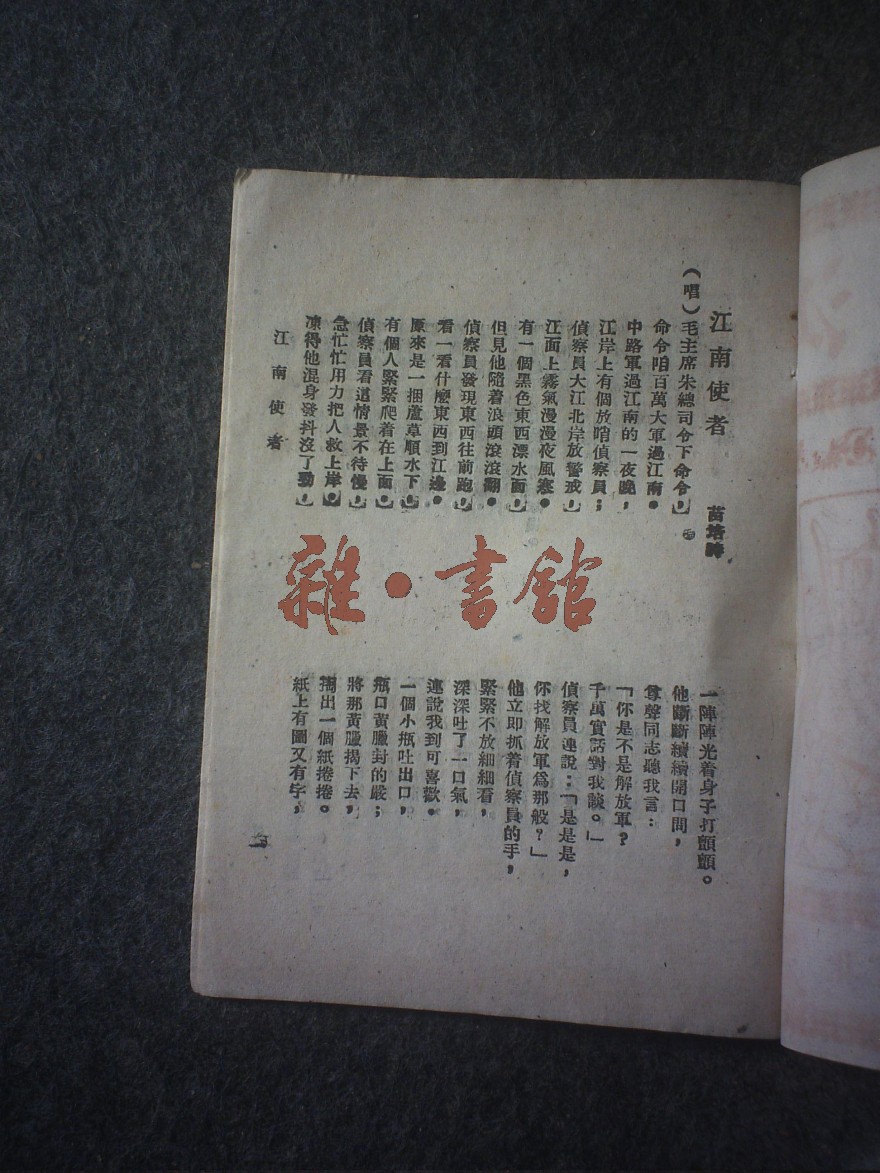 江南使者
苗培時
（唱）毛主席朱總司令下命令，
命令咱百萬大軍過江南。
中路軍過江南的一夜晚，
江岸上有個放哨偵察員；
偵察員大江北岸放警戒，
江面上霧氣漫漫夜風寒。
有一個黑色東西漂水面，
但見他隨着浪頭滾滾翻。
偵察員發現東西往前跑，
看一看什麼東西到江邊。
原來是一捆蘆草順水下，
有個人緊緊爬着在上面。
偵察員看這情景不待慢，
急忙忙用力把人救上岸。
凍得他混身發抖沒了勁，
一陣陣光着身子打顫顫。
他斷斷續續開口問，
尊聲同志聽我言：
「你是不是解放軍？
千萬實話對我談。」
偵察員連說：「是是是，
你找解放軍為那般？」
他立即抓着偵察員的手，
緊緊不放細細看，
深深吐了一口氣，
連說我到可喜歡。
一個小瓶吐出口，
瓶口黃臘封的嚴；
將那黃臘揭下去，
掏出一個紙捲捲。
紙上有圖又有字，
江南使者
雜·書館